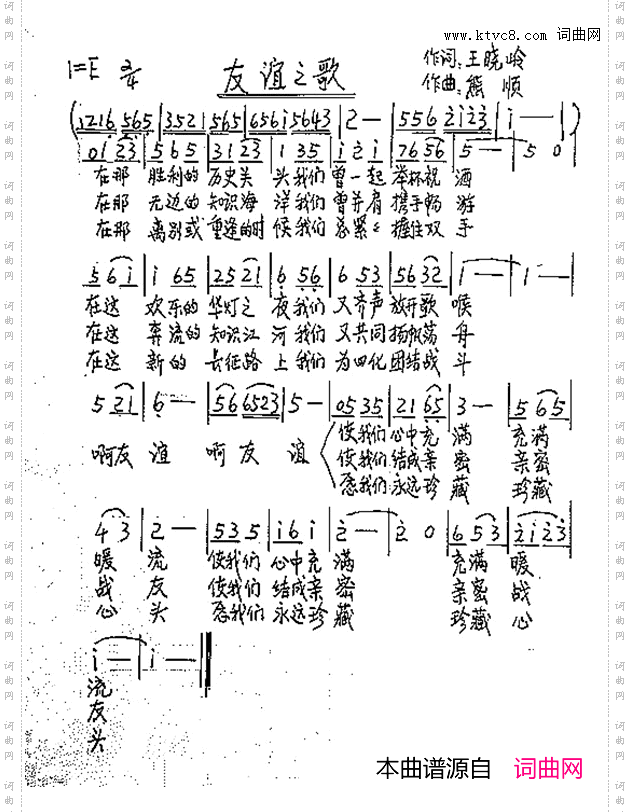 www.ktvc8.com 词曲网
1=E 2/4 友谊之歌 作词:王晓岭
作曲:熊顺
(1216 565|3521 565|656i 5643|2 —|556 2i23|i —|)
0i 23|5 6 5|31 23|1 35|i 2 i|76 56|5 —|5 0
在那 胜利的 历史关 头我们 曾一起 举杯祝 酒
在那 无边的 知识海 洋我们 曾并肩 携手畅 游
在那 离别或 重逢的时 候我们 总紧紧 握住双 手
5 6 i|i 65|25 21|6 56|6 53|56 32|1 —|1 —|
在这 欢乐的 华灯之 夜我们 又齐声 放开歌 喉
在这 奔流的 知识江 河我们 又共同 扬帆荡 舟
在这 新的 长征路 上我们 为四化 团结战 斗
5 21|6 —|56 6523|5 —|05 35|21 65|3 —|5 65|
啊友 谊 啊友 谊 使我们 心中充 满 充满
使我们 结成亲 密 亲密
愿我们 永远珍 藏 珍藏
4 3|2 —|53 5|i6 i|2 —|2 0|6 53|2i 23|
暖 流 使我们 心中充 满 充满 暖
战 友 使我们 结成亲 密 亲密 战
心 头 愿我们 永远珍 藏 珍藏 心
i —|i —‖
流
友
头
本曲谱源自 词曲网